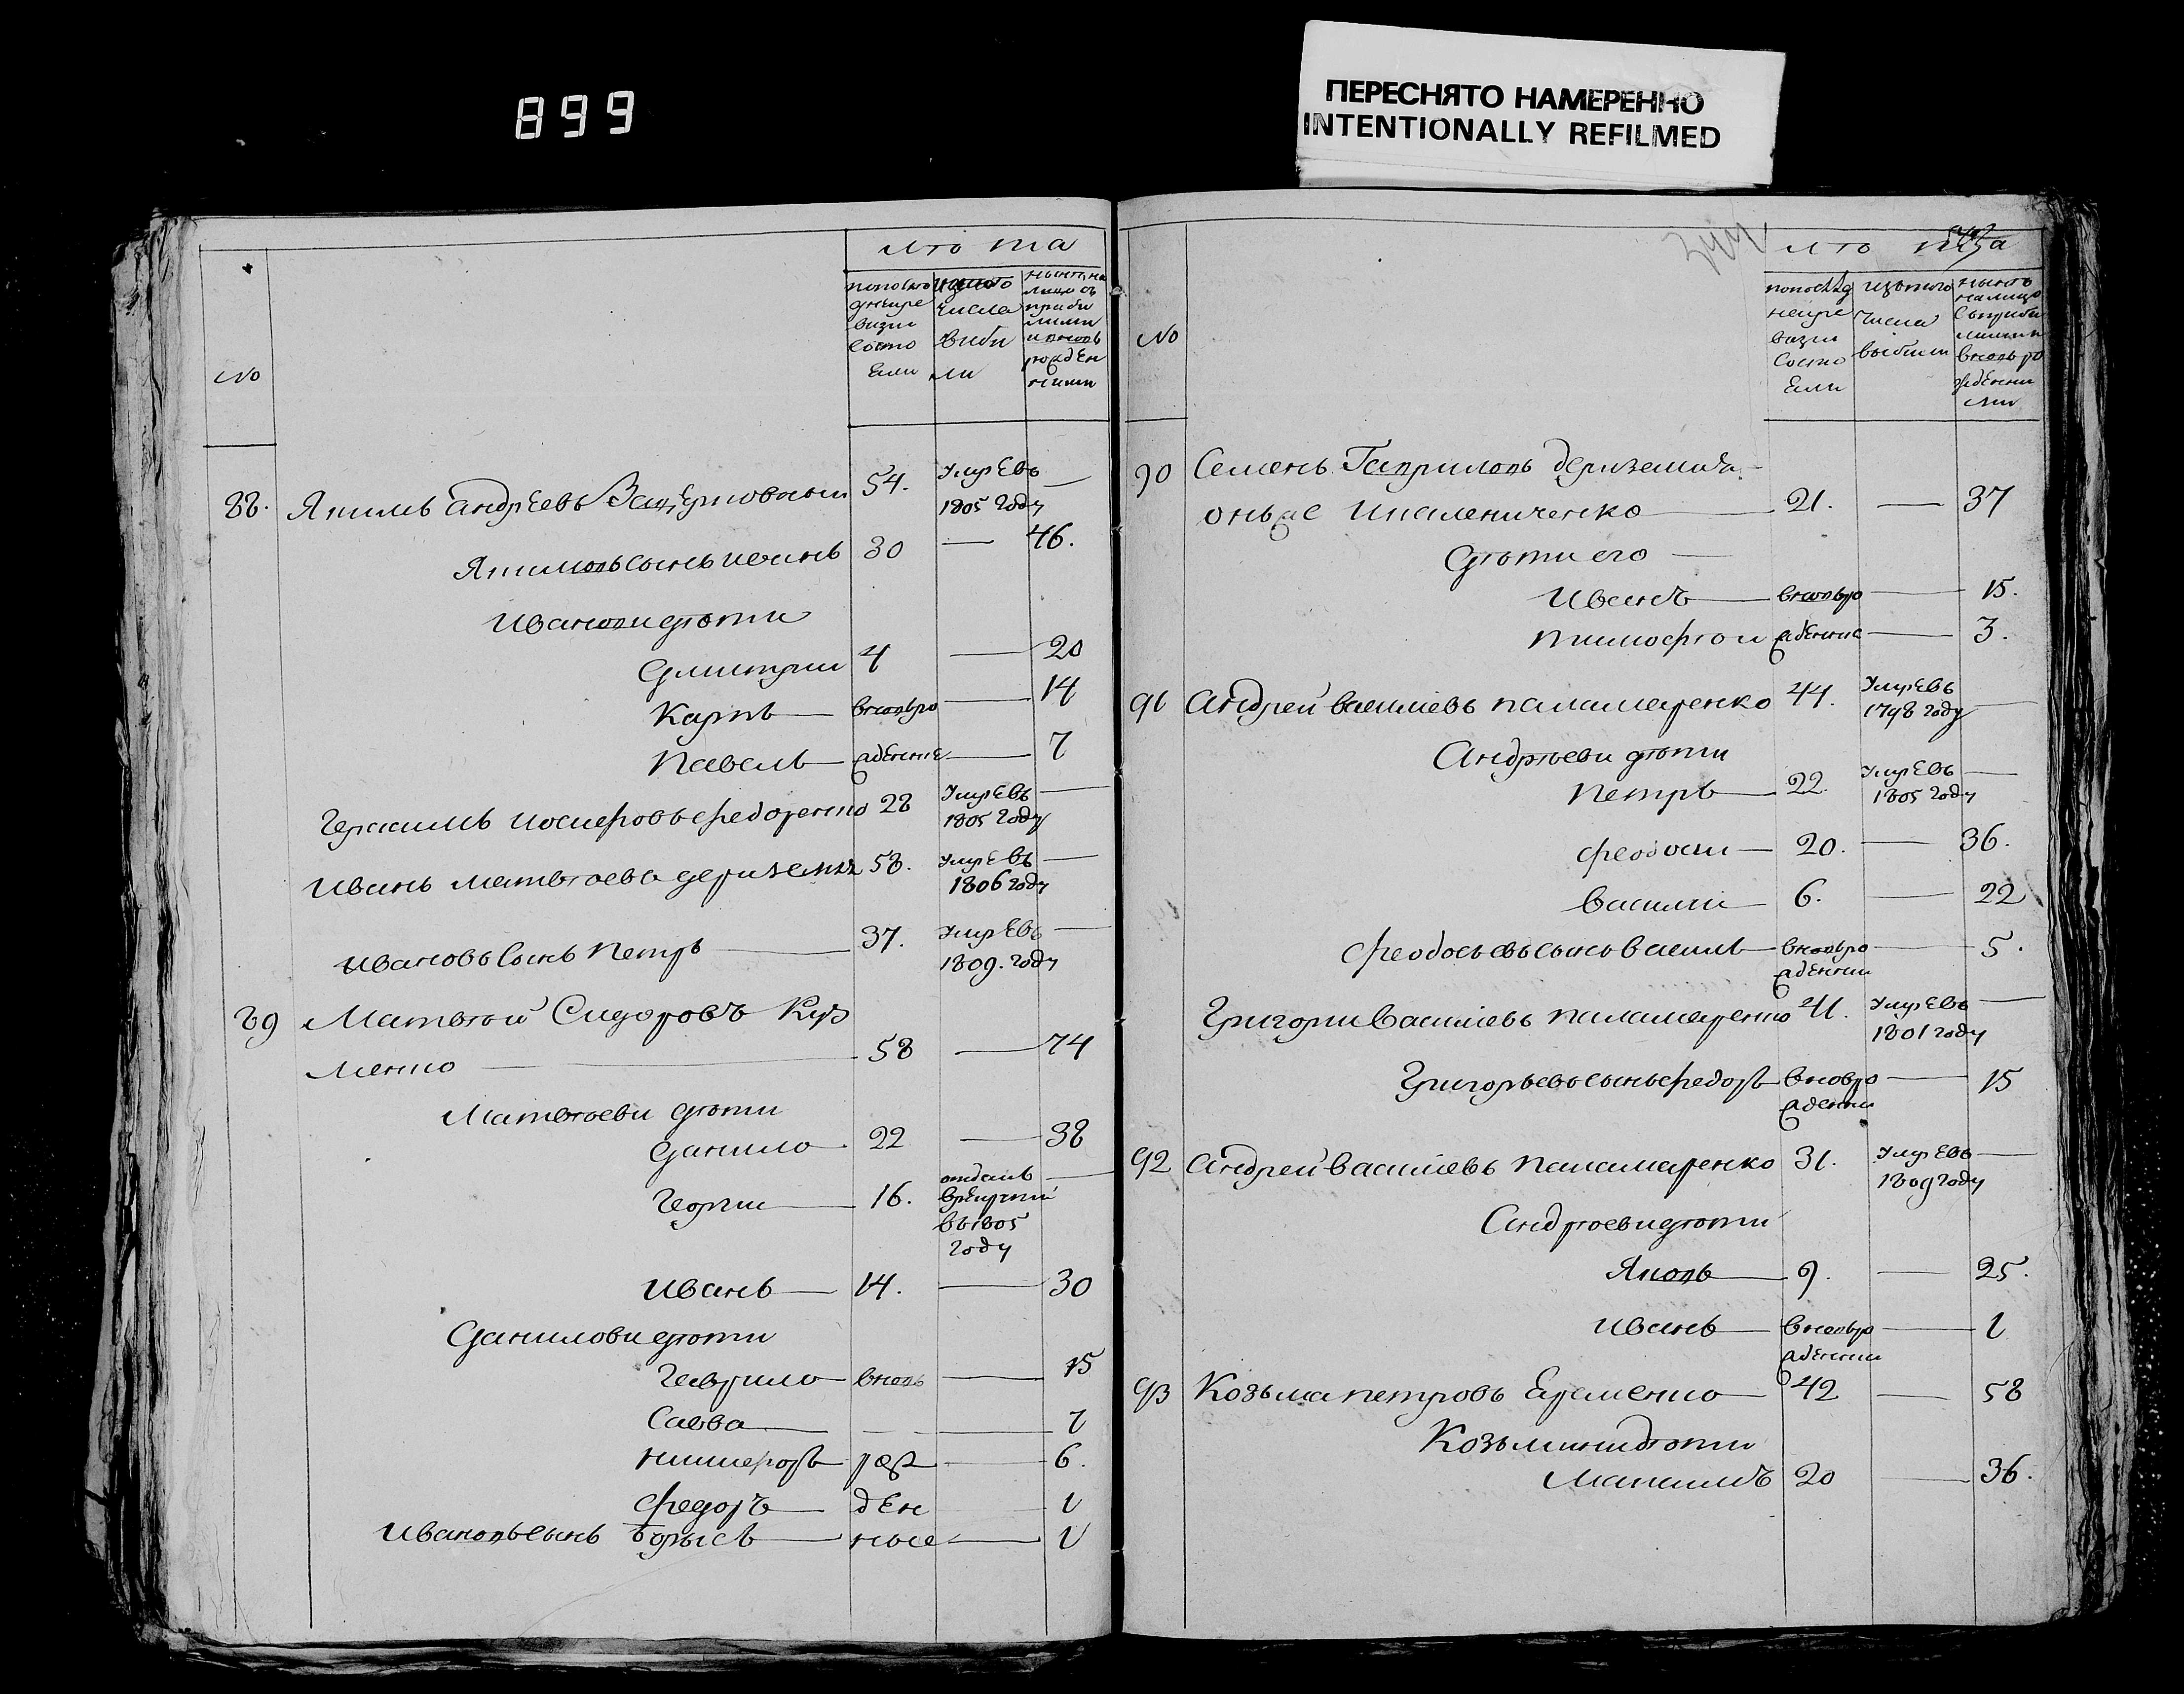 899
ПЕРЕСНЯТО НАМЕРЕННО
INTENTIONALLY REFILMED
лѣта
№
попослѣ днеи ре визи состо яли
исътого числа выбы ли
нынѣ на лицо съ прибы лыми и вновь рожден ными
88. Якимъ андреевъ 54. умревъ 1805 году —
Якимовъ сынъ иванъ 30 — 46.
Ивановы дѣти
Дмитрии 4 — 20
Карпъ вновъро — 14
Павелъ жденые — 7
Герасимъ иосифовъ федоренко 28 умревъ 1805 году —
Иванъ матвѣевъ дериземля 58. умревъ 1806 году —
Ивановъ сынъ Петръ 37. умревъ 1809. году —
89 Матвѣй Сидоровъ Куз
менко 58 — 74
Матвѣевы дѣти
Данило 22 — 38
Георгии 16. отданъ врекруты в 1805 году —
Иванъ 14. — 30
Даниловы дѣти
Гаврило вновь — 15
Савва — 7
Никифоръ рож — 6.
Федоръ ден 1
Ивановъ сынъ борысъ ные — 1
344
лѣта
№
попослѣд неи ре визи состо яли
изътого числа выбыли
нынѣ налицо съ прибы лыми вновь ро жденны ми
90 Семенъ Гавриловъ дериземля
онъже 21. — 37
Дѣти его —
Иванъ вновъро — 15.
тимофѣи жденые — 3.
91 Андрей васильевъ паламаренко 44. умревъ 1798 году —
Андрѣевы дѣти
Петръ 22. умревъ 1805 году —
феодоси 20. — 36.
василии 6. — 22
Феодосьевъ сынъ василь вновъро жденны — 5.
Григори васильевъ паламаренко 41. умревъ 1801 году —
Григорьевъ сынъ федоръ вновро ждены — 15
92 Андрей васильевъ паламаренко 31. умревъ 1809 году —
Андрѣевы дѣти
Яковъ 9. — 25.
иванъ вновьро жденны — 1
93 Козьма петровъ Еременко 42 — 58
Козьмины дѣти
Максимъ 20 — 36.